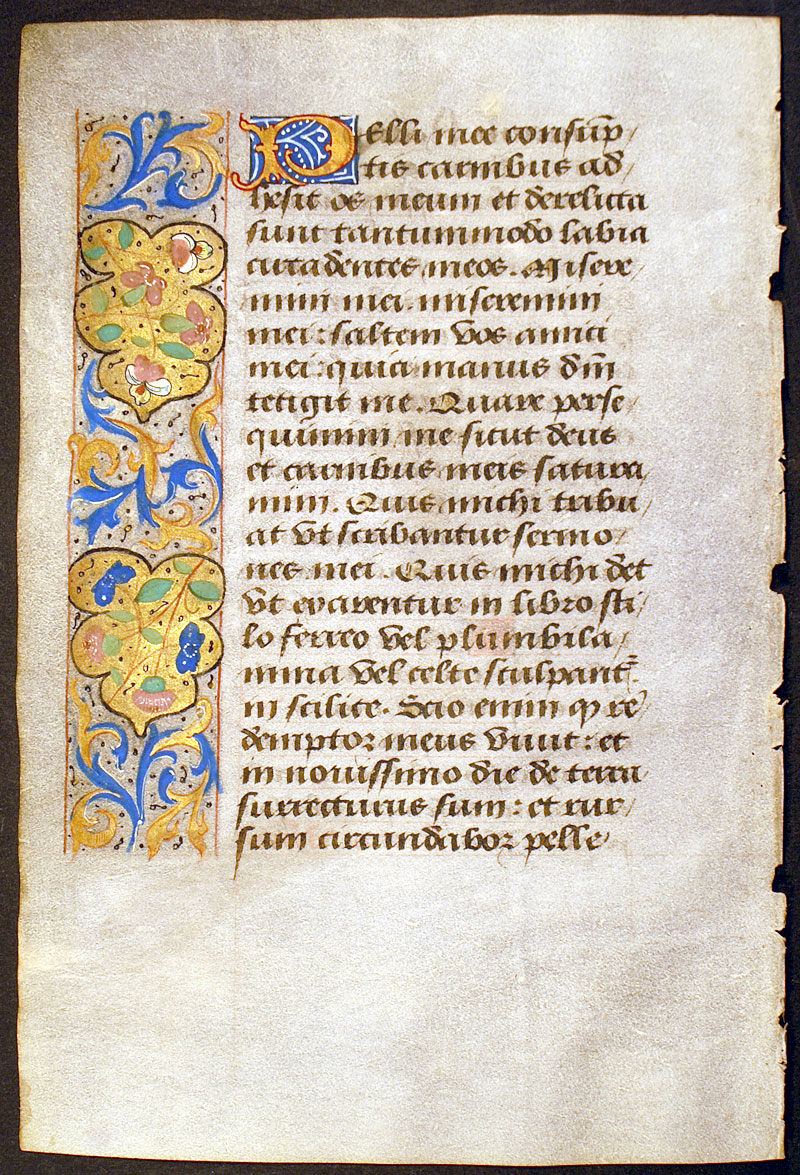 Pelli mee consūp
tis carnibus ad
hesit os meum et derelicta
sunt tantummodo labia
circa dentes meos. Misere
mini mei. miseremini
mei: saltem vos amici
mei: quia manus dñi
tetigit me. Quare perse
quimini me sicut deus
et carnibus meis satura
mini. Quis michi tribu
at vt scribantur sermo
nes mei. Quis michi det
vt exarentur in libro sti
lo ferreo vel plumbi la
mina vel celte sculpant᷑
in scilice. Scio enim ꝙ re
demptor meus viuit: et
in nouissimo die de terra
surrecturus sum: et rur
sum circundabor pelle